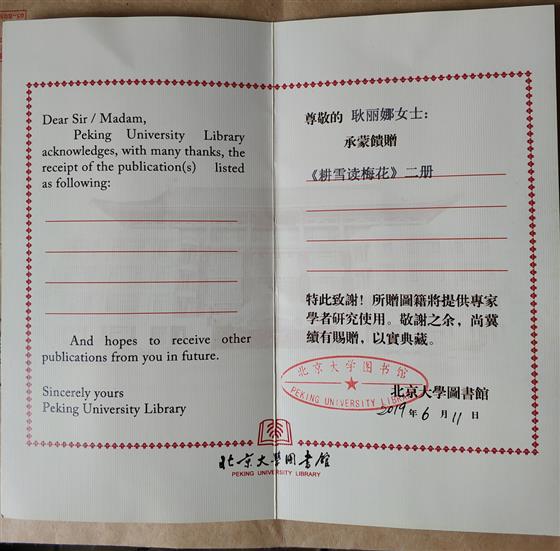 Dear Sir / Madam,
Peking University Library
acknowledges, with many thanks, the
receipt of the publication(s) listed
as following:
And hopes to receive other
publications from you in future.
Sincerely yours
Peking University Library
尊敬的 耿丽娜女士：
承蒙饋贈
《耕雪读梅花》二册
特此致謝！所贈圖籍將提供專家
學者研究使用。敬謝之余，尚冀
續有賜贈，以實典藏。
北京大学图书馆
PEKING UNIVERSITY LIBRARY
北京大學圖書館
2019 年 6 月 11 日
北京大學图書館
PEKING UNIVERSITY LIBRARY